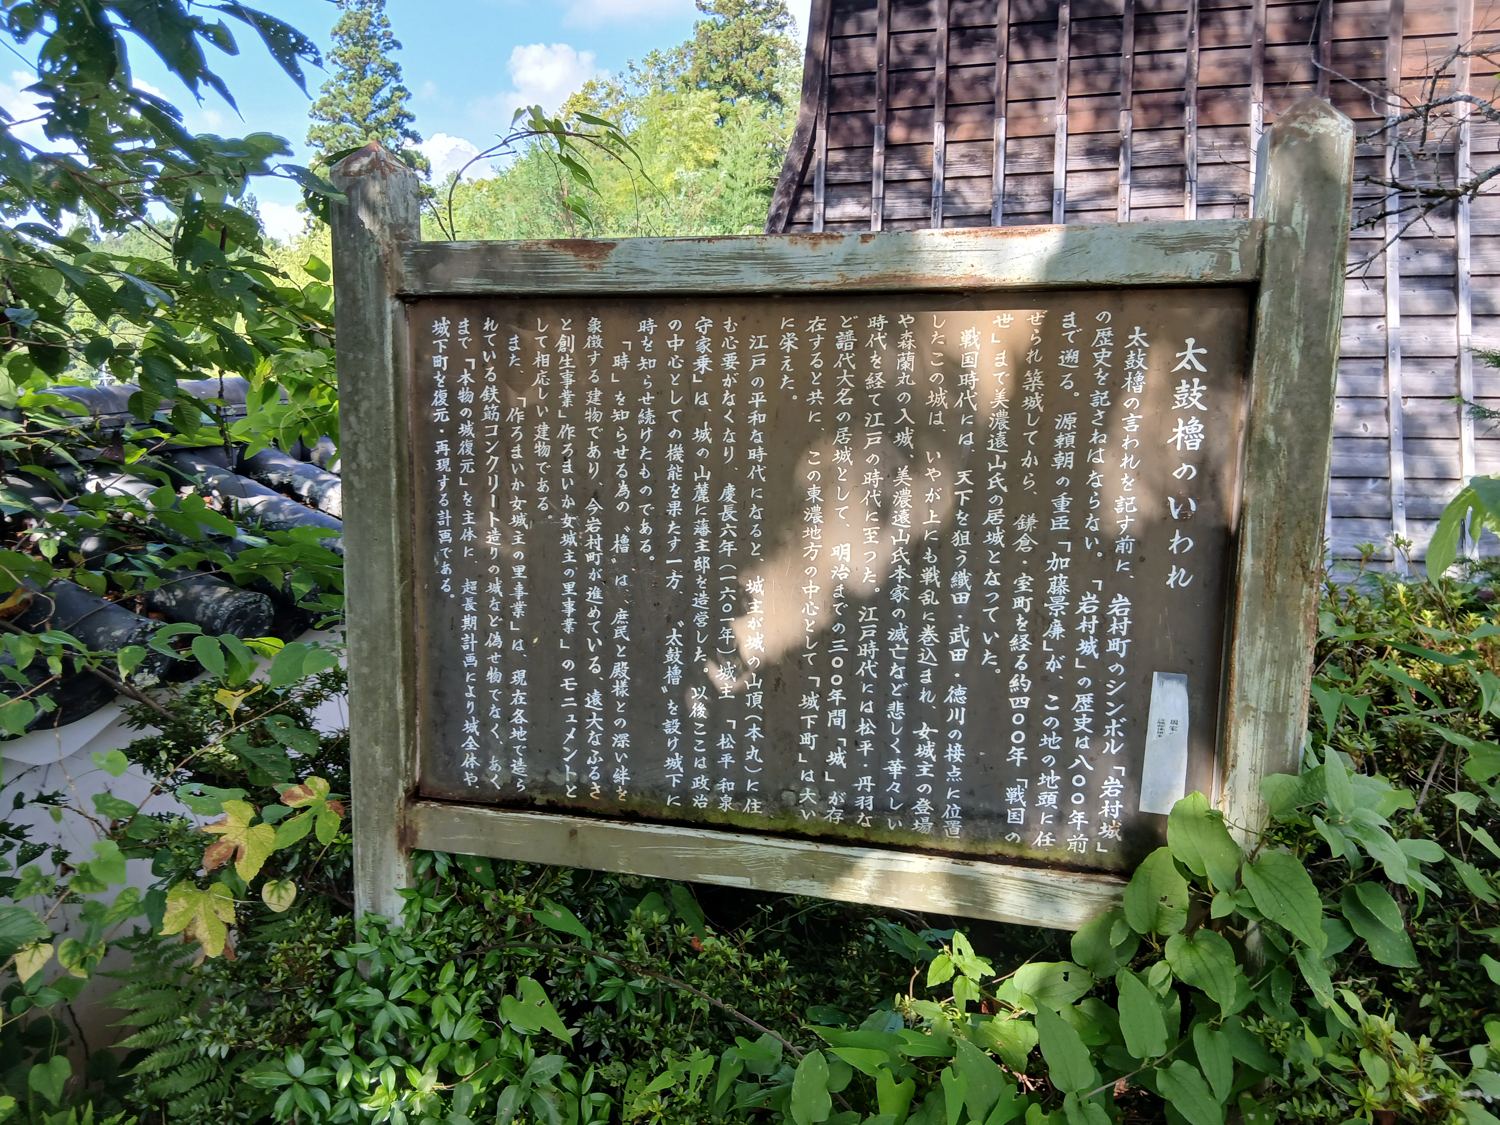 太鼓櫓のいわれ
太鼓櫓の言われを記す前に、岩村町のシンボル「岩村城」
の歴史を記さねばならない。「岩村城」の歴史は八〇〇年前
まで遡る。源頼朝の重臣「加藤景廉」が、この地の地頭に任
ぜられ築城してから、鎌倉・室町を経る約四〇〇年「戦国の
せ」まで美濃遠山氏の居城となっていた。
戦国時代には、天下を狙う織田・武田・徳川の接点に位置
したこの城は、いやが上にも戦乱に巻込まれ、女城主の登場
や森蘭丸の入城、美濃遠山氏本家の滅亡など悲しく華々しい
時代を経て江戸の時代に至つた。江戸時代には松平・丹羽な
ど譜代大名の居城として、明治までの三〇〇年間「城」が存
在すると共に、この東濃地方の中心として「城下町」は大い
に栄えた。
江戸の平和な時代になると、城主が城の山頂(本丸)に住
む必要がなくなり、慶長六年(一六〇一年)城主「松平和泉
守家乗」は、城の山麓に藩主邸を造営した。以後ここは政治
の中心としての機能を果たす一方、〝太鼓櫓〟を設け城下に
時を知らせ続けたものである。
「時」を知らせる為の〝櫓〟は、庶民と殿様との深い絆を
象徴する建物であり、今岩村町が進めている、遠大なふるさ
と創生事業」作ろまいか女城主の里事業」のモニュメントと
して相応しい建物である。
また、「作ろまいか女城主の里事業」は、現在各地で造ら
れている鉄筋コンクリート造りの城など偽せ物でなく、あく
まで「本物の城復元」を主体に、超長期計画により城全体や
城下町を復元・再現する計画である。